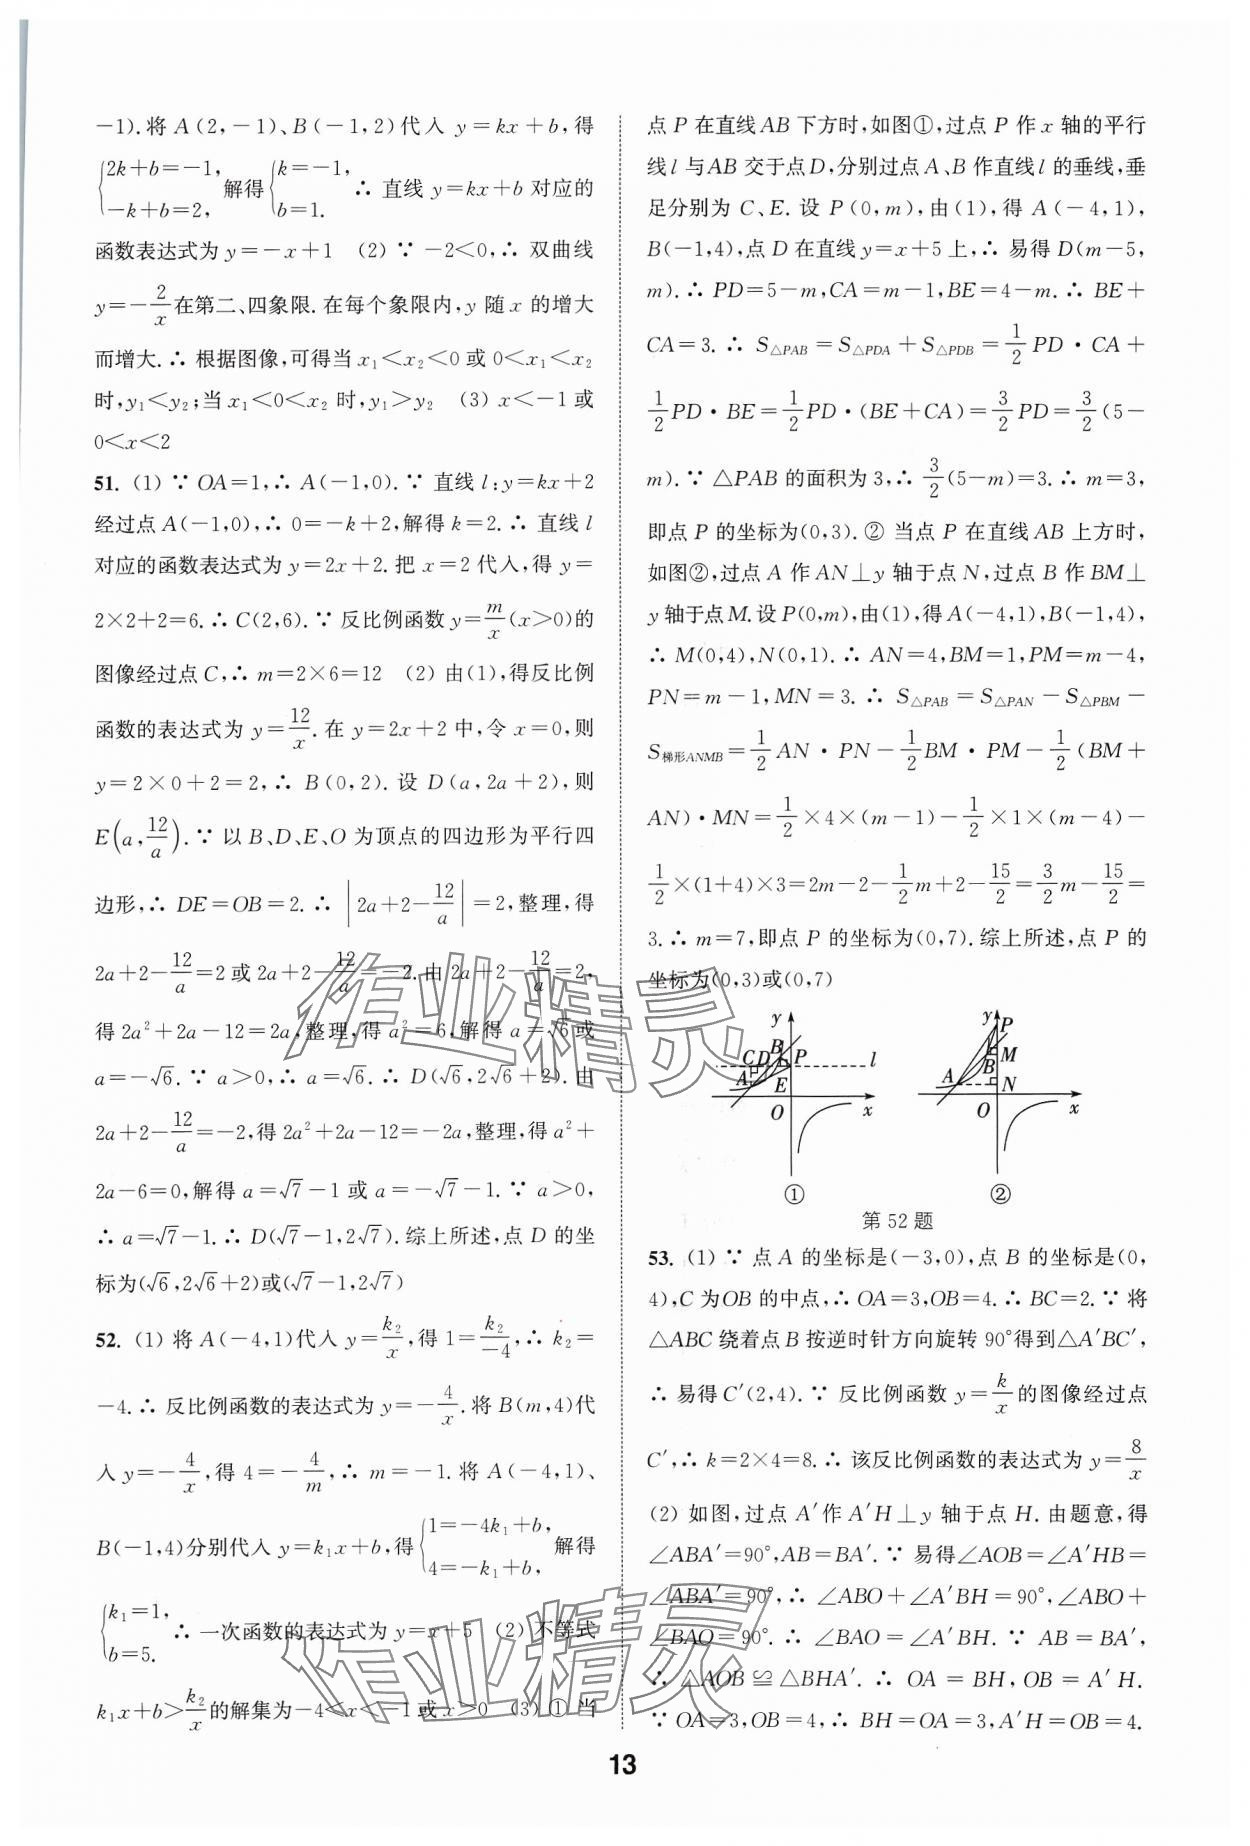 -1).将 A(2,-1)、B(-1,2)代入 y=kx+b,得
{2k+b=-1, -k+b=2, 解得{k=-1, b=1. ∴ 直线 y=kx+b 对应的
函数表达式为 y=-x+1 (2) ∵ -2<0,∴ 双曲线
y=-2/x在第二、四象限.在每个象限内,y 随 x 的增大
而增大.∴ 根据图像,可得当 x₁<x₂<0 或 0<x₁<x₂
时,y₁<y₂;当 x₁<0<x₂ 时,y₁>y₂ (3) x<-1 或
0<x<2
51. (1) ∵ OA=1,∴ A(-1,0).∵ 直线 l:y=kx+2
经过点 A(-1,0),∴ 0=-k+2,解得 k=2.∴ 直线 l
对应的函数表达式为 y=2x+2.把 x=2 代入,得 y=
2×2+2=6.∴ C(2,6).∵ 反比例函数 y=m/x(x>0)的
图像经过点 C,∴ m=2×6=12 (2) 由(1),得反比例
函数的表达式为 y=12/x.在 y=2x+2 中,令 x=0,则
y=2×0+2=2,∴ B(0,2).设 D(a,2a+2),则
E(a,12/a).∵ 以 B、D、E、O 为顶点的四边形为平行四
边形,∴ DE=OB=2.∴ |2a+2-12/a|=2,整理,得
2a+2-12/a=2 或 2a+2-12/a=-2.由 2a+2-12/a=2,
得 2a²+2a-12=2a,整理,得 a²=6,解得 a=√6或
a=-√6.∵ a>0,∴ a=√6.∴ D(√6,2√6+2).由
2a+2-12/a=-2,得 2a²+2a-12=-2a,整理,得 a²+
2a-6=0,解得 a=√7-1 或 a=-√7-1.∵ a>0,
∴ a=√7-1.∴ D(√7-1,2√7).综上所述,点 D 的坐
标为(√6,2√6+2)或(√7-1,2√7)
52. (1) 将 A(-4,1)代入 y=k₂/x,得 1=k₂/-4,∴ k₂=
-4.∴ 反比例函数的表达式为 y=-4/x.将 B(m,4)代
入 y=-4/x,得 4=-4/m,∴ m=-1.将 A(-4,1)、
B(-1,4)分别代入 y=k₁x+b,得{1=-4k₁+b, 4=-k₁+b, 解得
{k₁=1, b=5. ∴ 一次函数的表达式为 y=x+5 (2) 不等式
k₁x+b>k₂/x的解集为-4<x<-1 或 x>0 (3) ① 当
点 P 在直线 AB 下方时,如图①,过点 P 作 x 轴的平行
线 l 与 AB 交于点 D,分别过点 A、B 作直线 l 的垂线,垂
足分别为 C、E.设 P(0,m),由(1),得 A(-4,1),
B(-1,4),点 D 在直线 y=x+5 上,∴ 易得 D(m-5,
m).∴ PD=5-m,CA=m-1,BE=4-m.∴ BE+
CA=3.∴ S△PAB=S△PDA+S△PDB=1/2 PD·CA+
1/2 PD·BE=1/2 PD·(BE+CA)=3/2 PD=3/2(5-
m).∵ △PAB 的面积为 3,∴ 3/2(5-m)=3.∴ m=3,
即点 P 的坐标为(0,3).② 当点 P 在直线 AB 上方时,
如图②,过点 A 作 AN⊥y 轴于点 N,过点 B 作 BM⊥
y 轴于点 M.设 P(0,m),由(1),得 A(-4,1),B(-1,4),
∴ M(0,4),N(0,1).∴ AN=4,BM=1,PM=m-4,
PN=m-1,MN=3.∴ S△PAB=S△PAN-S△PBM-
S梯形ANMB=1/2 AN·PN-1/2 BM·PM-1/2(BM+
AN)·MN=1/2×4×(m-1)-1/2×1×(m-4)-
1/2×(1+4)×3=2m-2-1/2m+2-15/2=3/2m-15/2=
3.∴ m=7,即点 P 的坐标为(0,7).综上所述,点 P 的
坐标为(0,3)或(0,7)
y B C D P l A E O x ①
y P M B A N O x ②
第 52 题
53. (1) ∵ 点 A 的坐标是(-3,0),点 B 的坐标是(0,
4),C 为OB 的中点,∴ OA=3,OB=4.∴ BC=2.∵ 将
△ABC 绕着点 B 按逆时针方向旋转 90°得到△A'BC',
∴ 易得 C'(2,4).∵ 反比例函数 y=k/x的图像经过点
C',∴ k=2×4=8.∴ 该反比例函数的表达式为 y=8/x
(2) 如图,过点 A'作 A'H⊥y 轴于点 H.由题意,得
∠ABA'=90°,AB=BA'.∵ 易得∠AOB=∠A'HB=
∠ABA'=90°,∴ ∠ABO+∠A'BH=90°,∠ABO+
∠BAO=90°.∴ ∠BAO=∠A'BH.∵ AB=BA',
∴ △AOB≌△BHA'.∴ OA=BH,OB=A'H.
∵ OA=3,OB=4,∴ BH=OA=3,A'H=OB=4.
13
作业精灵
作业精灵